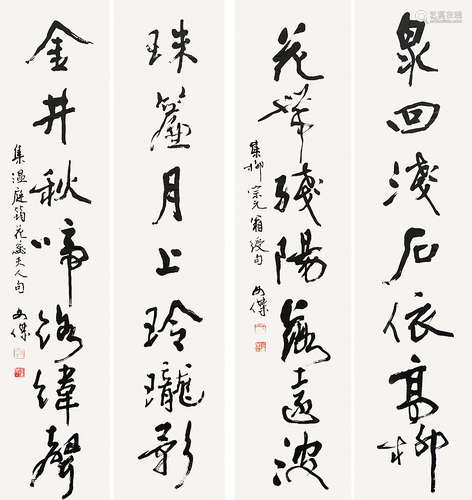 泉回淺石依高柳
花帶殘陽落遠波
集柳宗元翁綬句 傑
珠簾月上玲瓏影
金井秋啼絡緯聲
集温庭筠花蕊夫人句 傑